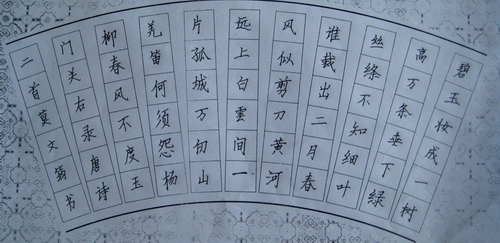 碧玉妆成一树
高万条垂下绿
丝绦不知细叶
谁裁出二月春
风似剪刀黄河
远上白雲间一
片孤城万仞山
羌笛何须怨杨
柳春风不度玉
门关右录唐诗
二首莫文书